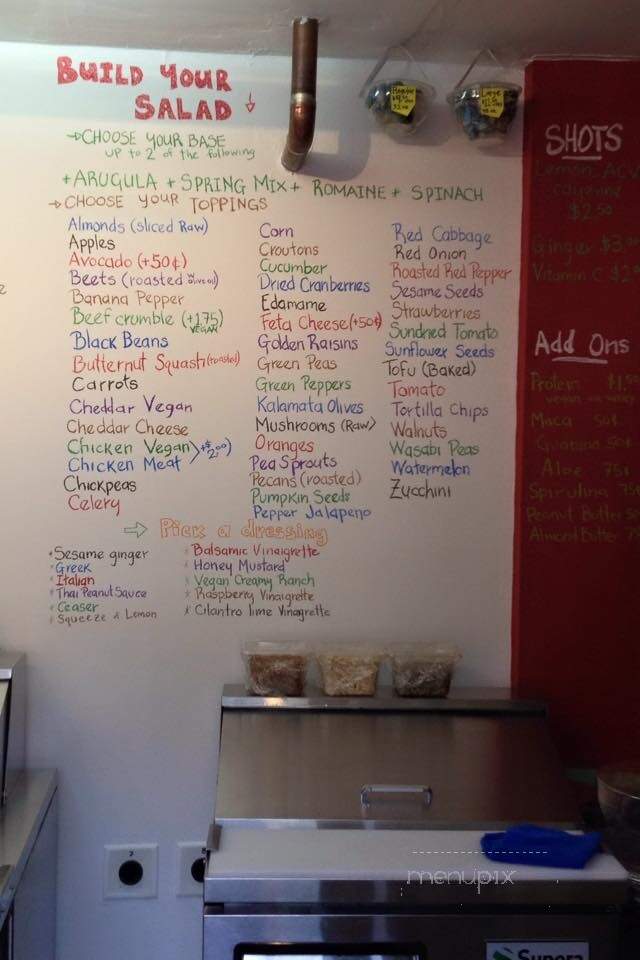 BUILD YOUR
SALAD
CHOOSE YOUR BASE
up to 2 of the following
+ARUGULA +SPRING MIX+ ROMAINE+ SPINACH
CHOOSE YOUR TOPPINGS
Almonds (sliced Raw)
Apples
Avocado (+50¢)
Beets (roasted w olive oil)
Banana Pepper
Beef crumble (+1.75)
VEGAN
Black Beans
Butternut Squash (roasted)
Carrots
Cheddar Vegan
Cheddar Cheese
Chicken Vegan
Chicken Meat
+$2.00)
Chickpeas
Celery
Corn
Croutons
Cucumber
Dried Cranberries
Edamame
Feta Cheese(+50¢)
Golden Raisins
Green Peas
Green Peppers
Kalamata Olives
Mushrooms (Raw)
Oranges
Pea Sprouts
Pecans (roasted)
Pumpkin Seeds
Pepper Jalapeno
Red Cabbage
Red Onion
Roasted Red Pepper
Sesame Seeds
Strawberries
Sundried Tomato
Sunflower Seeds
Tofu (Baked)
Tomato
Tortilla Chips
Walnuts
Wasabi Peas
Watermelon
Zucchini
Pick a dressing
Sesame ginger
Greek
Italian
Thai Peanut Sauce
Ceaser
Squeeze a Lemon
Balsamic Vinaigrette
Honey Mustard
Vegan Creamy Ranch
Raspberry Vinaigrette
Cilantro lime Vinagrette
SHOTS
Lemon, ACV
$2.50
Ginger
Vitamin C
Add Ons
Protein
Maca 50¢
Guarana 50¢
Aloe 75¢
Spirulina
Peanut Butter
Almond Butter
menupix
Supera